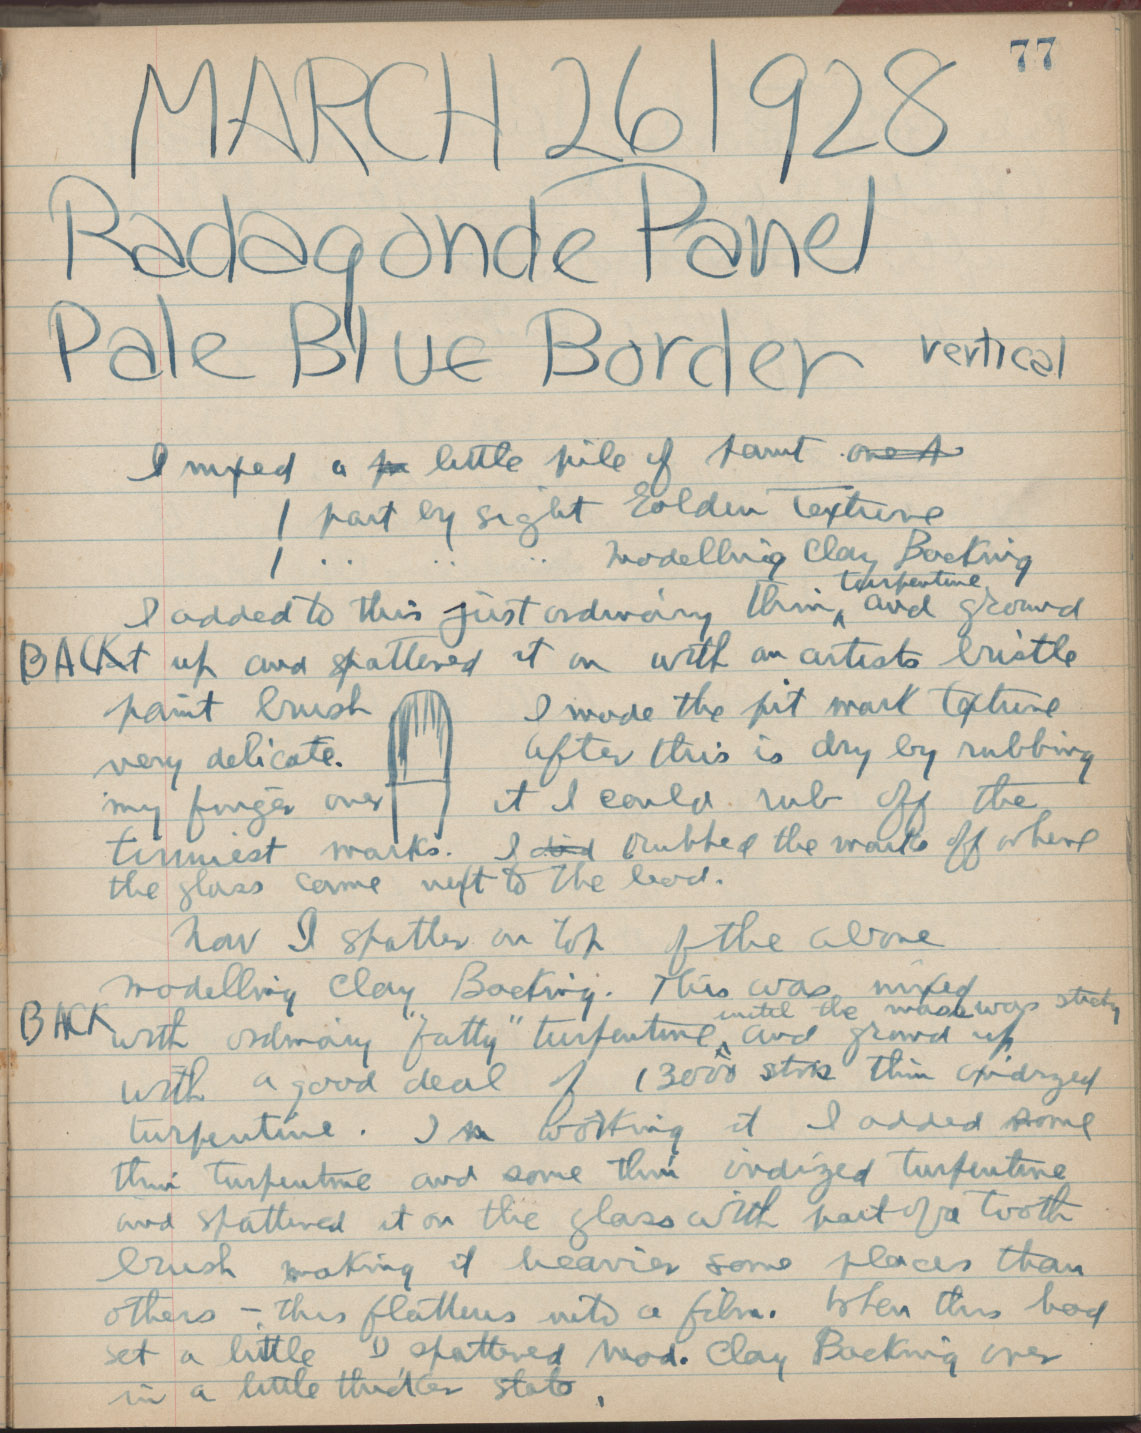 77
MARCH 26 1928
Radagonde Panel
Pale Blue Border vertical
I mixed a little pile of paint one p
1 part by sight Golden Texture
1 .. .. .. Modelling Clay Backing
turpentine
I added to this just ordinary thin ^ and ground
BACK it up and spattered it on with an artists bristle
paint brush I made the pit mark texture
very delicate. After this is dry by rubbing
my finger over it I could rub off the
tinniest marks. I did rubbed the marks off where
the glass came next to the lead.
Now I spatter on top of the above
Modelling Clay Backing. This was mixed
until the mass was sticky
BACK with ordinary "fatty" turpentine ^ and ground up
with a good deal of 1300 thin oxidized
turpentine. In working it I added some
thin turpentine and some thin oxidized turpentine
and spattered it on the glass with part of a tooth
brush making it heavier some places than
others - this flattens into a film. When this had
set a little I spattered Mod. Clay Backing over
in a little thicker state.